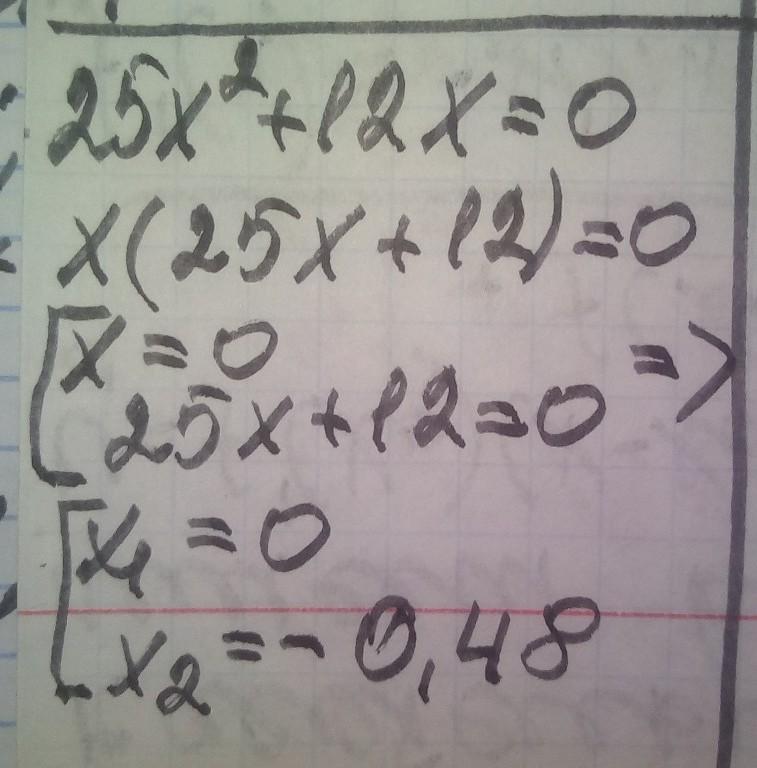 25x²+12x=0
x(25x+12)=0
[x=0
25x+12=0 =>
[x₁=0
x₂=-0,48